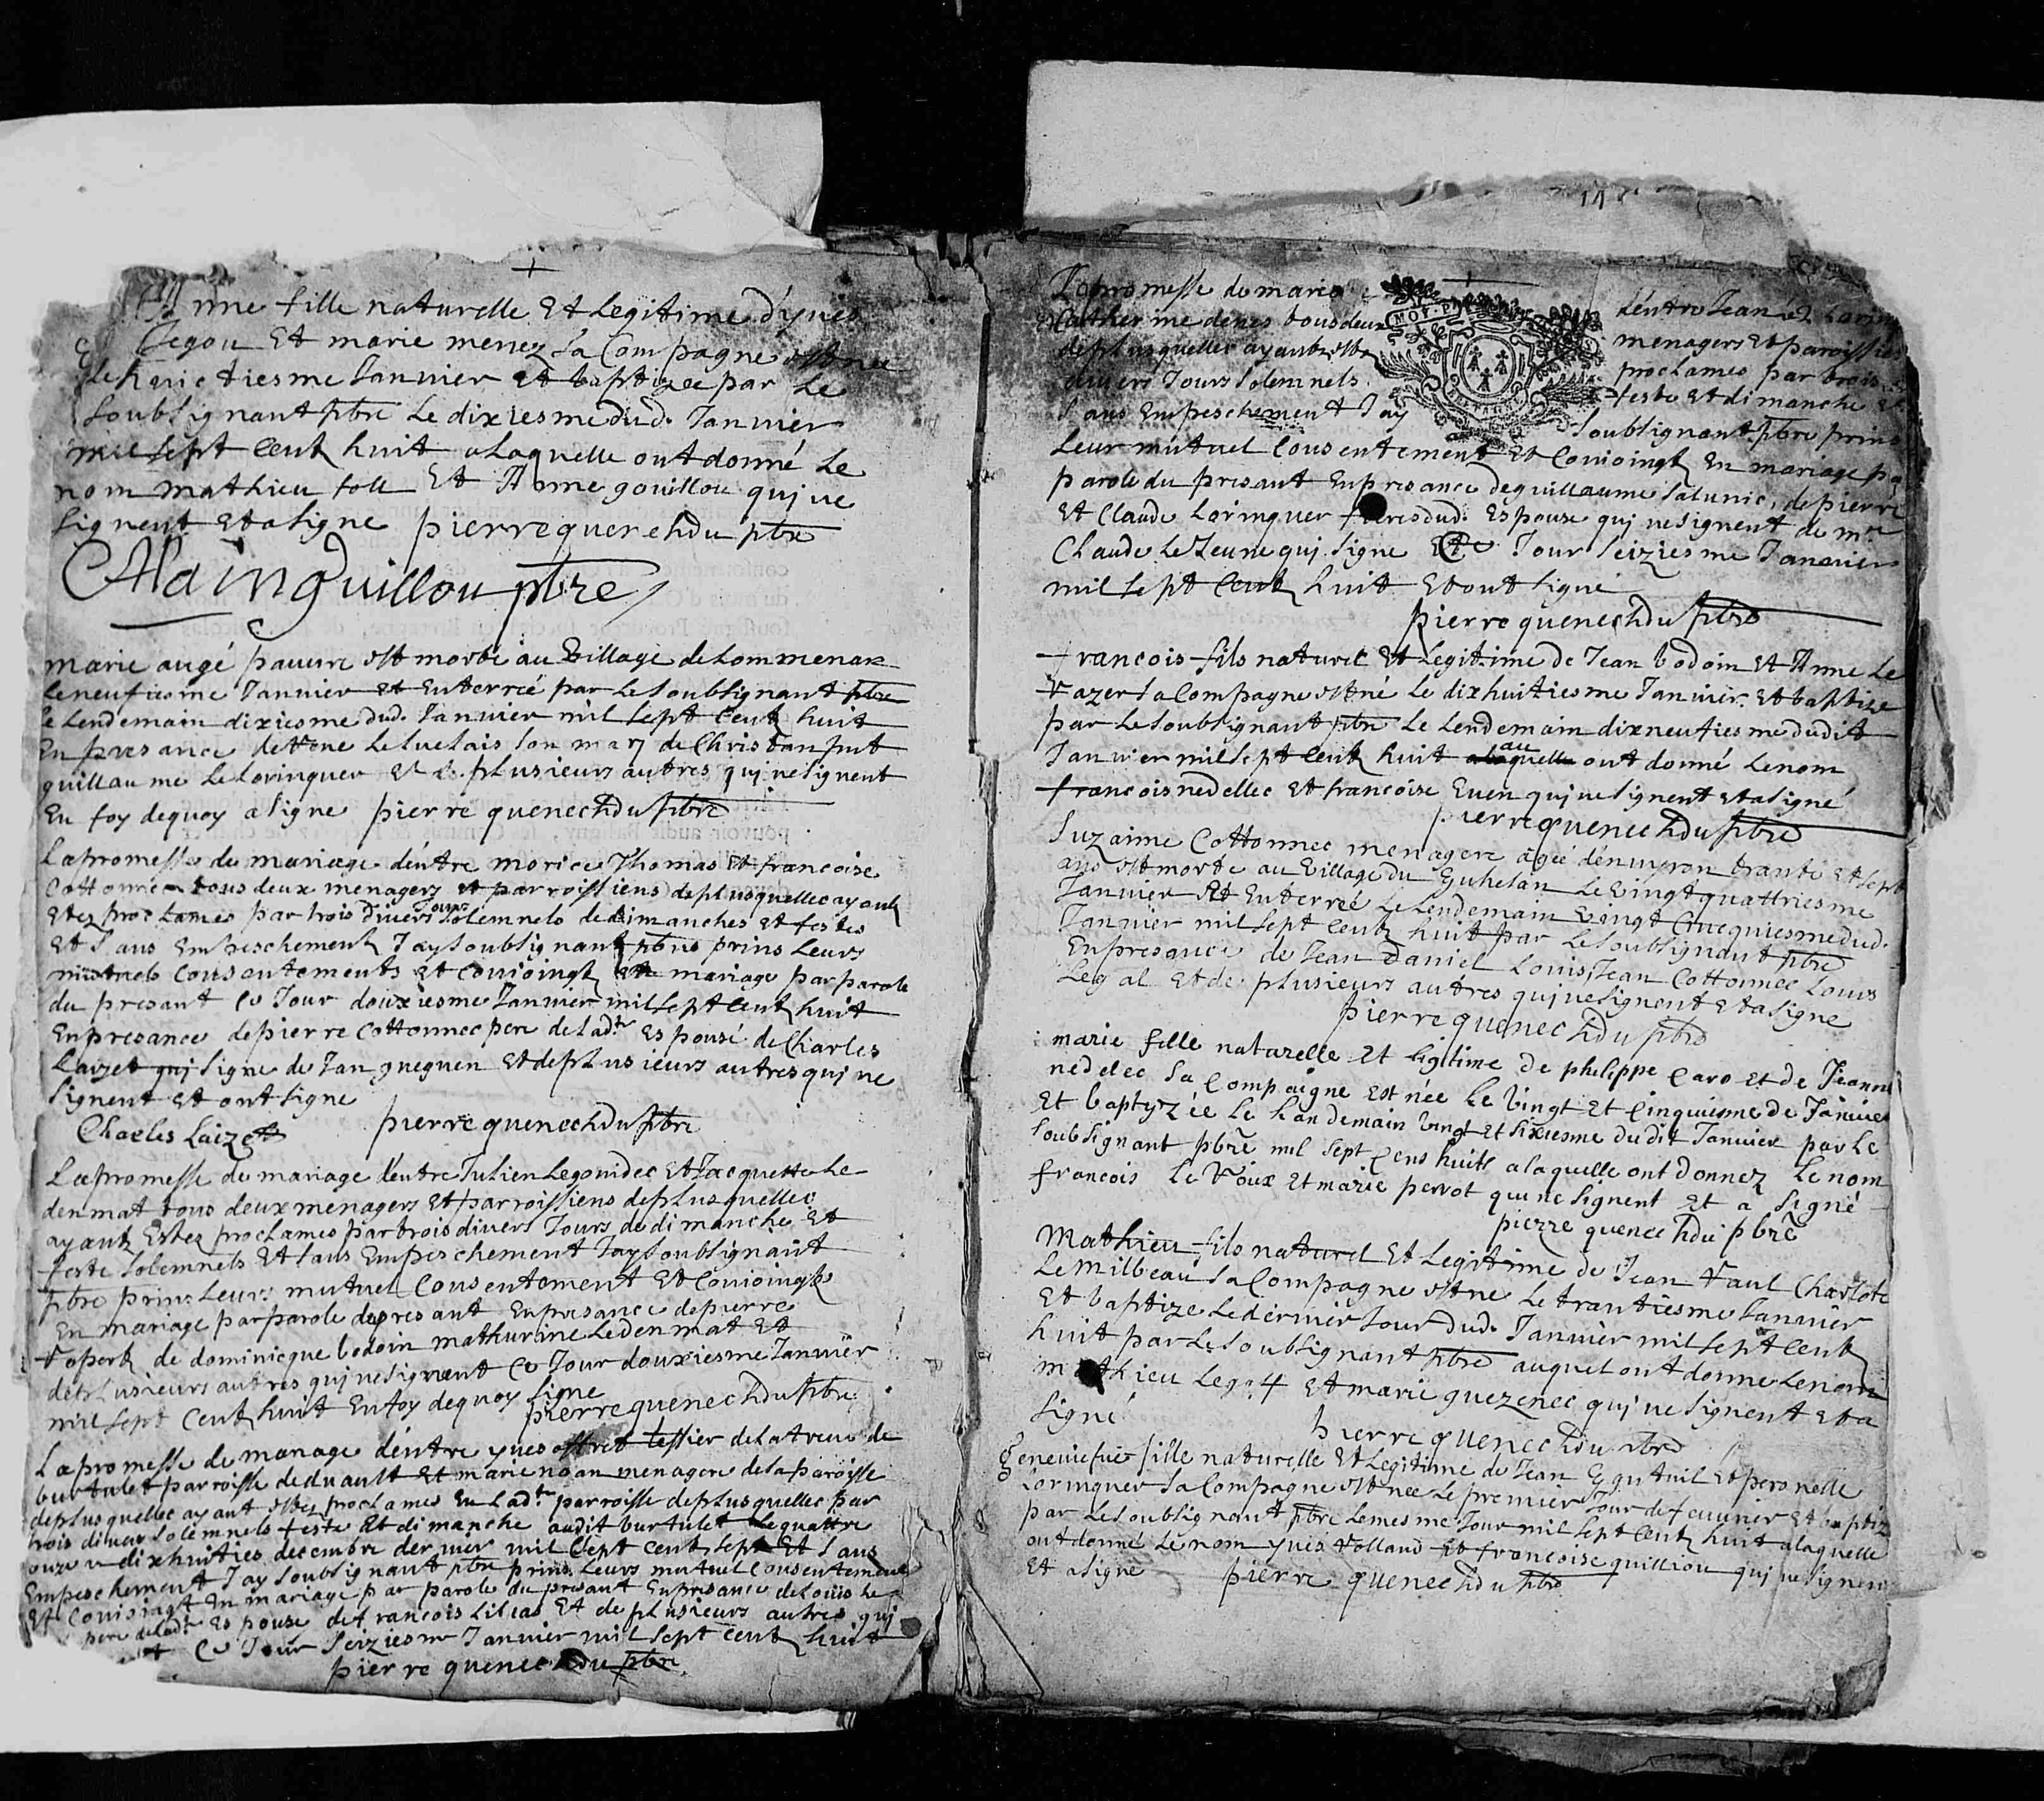 Anne fille naturelle Et Legitime d'yues
Jegou Et marie menez sa Compagne est née
le huictiesme Januier Et baptizee par Le
Soubsignant pbre Le dixiesme dud. Januier
mil sept Cent huit a Laquelle ont donné Le
nom mathieu toll Et Anne gouillou quj ne
signent Et a signe pierre quenechdu pbre
Alain guillou pbre
marie augé pauure est morte au Village de Lommenan
Le neufuiesme Januier et Enterreé par Le Soubsignant pbre
le Lendemain dixiesme dud. Januier mil sept Cent huit
En presance de son marj de
guillaume Le Lorinquer et de plusieurs autres quj ne signent
En foy dequoy a signe pierre quenechdu pbre
La promesse de mariage d'entre morice Thomas Et francoise
Cottonnec tous deux menagers et parroissiens de plusquellec ayant
Estez proclames par trois divers Jours solemnels de dimanches Et festes
Et sans Empeschement J'ay soubsignant pbre prins Leurs
mutuels Consentements Et Conioingt En mariage par parole
du presant Ce Jour douxiesme Januier mil sept Cent huit
En presance de pierre Cottonnec pere de Lad.te Espousé de Charles
Laizet quj signe de Jan gueguen Et de plusieurs autres quj ne
signent Et ont signe
Charles Laizet pierre quenechdu pbre
La promesse de mariage d'entre Julien Legouidec Et Jacquette Le
denmat tous deux menagers Et parroissiens de plusquellec
ayant Estez proclames par trois divers Jours de dimanche Et
feste solemnels Et sans Empeschement J'ay soubsignant
pbre prins Leurs mutuel Consentement Et Conioingt
En mariage par parole de presant En presance de pierre
de dominicque bodoin mathurine Le denmat Et
de plusieurs autres quj ne signent Ce Jour douxiesme Januier
mil sept Cent huit En foy dequoy signe
pierre quenechdu pbre
La promesse de mariage d'entre yues tessier de La treue de
burtulet parroisse de duault Et marie noan menagere de la paroisse
de plusquellec ayant Estez proclames En Lad.te parroisse de plusquellec par
trois divers solemnels feste Et dimanche audit burtulet Le quattre
onze Et dixhuities decembre dernier mil Sept cent sept Et sans
Empeschement J'ay soubsignant pbre prins Leurs mutuel Consentement
Et Conioingt En mariage par parole du presant En presance de Louis Le
pere de Lad.te Espouse de francois Et de plusieurs autres quj
Ce Jour Seiziesme Januier mil sept cent huit
pierre quenechdu pbre
14
La promesse de maria d'entre Jean
Catherine denes tous deux menagers Et paroissiens
de plusquellec ayant Estez proclames par trois
divers Jours solemnels feste Et dimanche Et
sans Empeschement J'ay soubsignant pbre prins
Leur mutuel Consentement Et Conioingt En mariage pa
parole du presant En presance de guillaume Salunic, de pierre
Et Claude Lorinquer freres dud. Espouse quj ne signent de m.r
Claude Le Jeune quj signe Ce Jour Seiziesme Januier
mil sept Cent huit Et ont signé
pierre quenechdu pbre
francois fils naturel Et Legitime de Jean bodoin Et Anne Le
Vazer sa Compagne est né Le dixhuitiesme Januier. Et baptize
par Le Soubsignant pbre Le Lendemain dixneufiesme dudit
Januier mil sept Cent huit au quelle ont donné Le nom
francois nedellec Et francoise Euen quj ne signent Et a signé
pierre quenechdu pbre
Suzaime Cottonnec menagere ageé d'enuyron trante Et sept
ans est morte au Village du Guhelan Le Vingt quattriesme
Januier Et Enterreé Le Lendemain Vingt Cincquiesme dud.
Januier mil sept Cent huit par Le Soubsignant pbre
En presance de Jean daniel Louis, Jean Cottonnec Louis
Legal Et de plusieurs autres quj ne signent Et a signe
pierre quenechdu pbre
marie fille naturelle Et ligitime de philippe Caro Et de Jeanne
nedelec Sa Compaigne Est neé Le Vingt Et Cinquiesme de Januier
Et baptyzée Le Landemain Vingt Et sixiesme du dit Januier par Le
soubsignant pbre mil sept Cens huits a laquelle ont donnez Le nom
francois Le Roux Et marie perrot qui ne signent Et a signé
pierre quenechdu pbre
Mathieu fils naturel Et Legitime de Jean Raul Charlote
Le milbeau sa Compagne est ne Le trantiesme Januier
Et baptize Le dernier Jour dud. Januier mil sept Cent
huit par Le Soubsignant pbre auquel ont donne Le nom
mathieu Legoff Et marie guezenec quj ne signent Et a
signé
pierre quenechdu pbre
geneuiefue fille naturelle Et Legitime de Jean Et peronelle
Lorinquer sa Compagne est neé Le premier Jour de feuurier Et baptiz
par Le Soubsignant pbre Le mesme Jour mil sept Cent huit a laquelle
ont donné Le nom yues Rolland Et francoise quilliou quj ne signent
Et a signé pierre quenechdu pbre